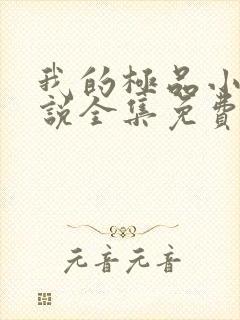 我的極品小
說全集免費
元音元音